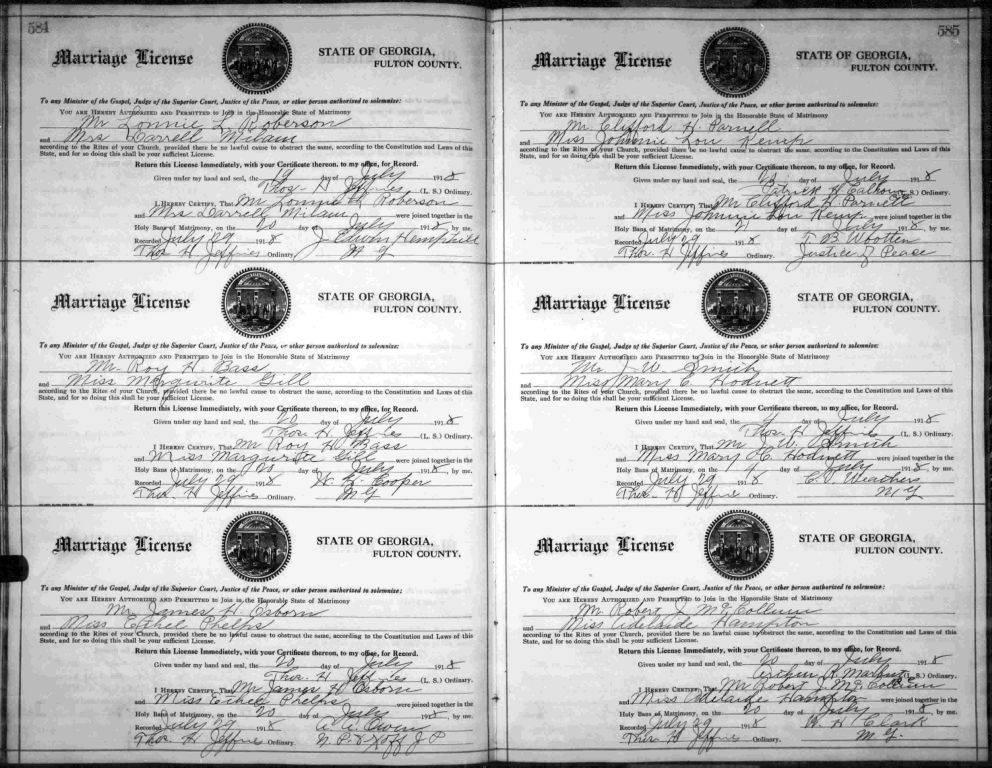 584
Marriage License
STATE OF GEORGIA,
FULTON COUNTY.
To any Minister of the Gospel, Judge of the Superior Court, Justice of the Peace, or other person authorized to solemnize:
YOU ARE HEREBY AUTHORIZED AND PERMITTED to Join in the Honorable State of Matrimony
Mr Lonnie L. Roberson
and Mrs Darrell Milam
according to the Rites of your Church, provided there be no lawful cause to obstruct the same, according to the Constitution and Laws of this
State, and for so doing this shall be your sufficient License.
Return this License Immediately, with your Certificate thereon, to my office, for Record.
Given under my hand and seal, the 19 day of July 1918
Thos. H. Jeffries (L. S.) Ordinary.
I HEREBY CERTIFY, That Mr Lonnie L Roberson
and Mrs Darrell Milam were joined together in the
Holy Bans of Matrimony, on the 20 day of July 1918, by me.
Recorded July 29 1918 J. Edwin Hemphill
Thos H Jeffries Ordinary. M G
Marriage License
STATE OF GEORGIA,
FULTON COUNTY.
To any Minister of the Gospel, Judge of the Superior Court, Justice of the Peace, or other person authorized to solemnize:
YOU ARE HEREBY AUTHORIZED AND PERMITTED to Join in the Honorable State of Matrimony
Mr. Roy H. Bass
and Miss Margurite Gill
according to the Rites of your Church, provided there be no lawful cause to obstruct the same, according to the Constitution and Laws of this
State, and for so doing this shall be your sufficient License.
Return this License Immediately, with your Certificate thereon, to my office, for Record.
Given under my hand and seal, the 20 day of July 1918
Thos. H. Jeffries (L. S.) Ordinary.
I HEREBY CERTIFY, That Mr Roy H. Bass
and Miss Margurite Gill were joined together in the
Holy Bans of Matrimony, on the 20 day of July 1918, by me.
Recorded July 29 1918 Cooper
Thos. H Jeffries Ordinary. M G
Marriage License
STATE OF GEORGIA,
FULTON COUNTY.
To any Minister of the Gospel, Judge of the Superior Court, Justice of the Peace, or other person authorized to solemnize:
YOU ARE HEREBY AUTHORIZED AND PERMITTED to Join in the Honorable State of Matrimony
Mr James H. Osborn
and Miss Ethel Phelps
according to the Rites of your Church, provided there be no lawful cause to obstruct the same, according to the Constitution and Laws of this
State, and for so doing this shall be your sufficient License.
Return this License Immediately, with your Certificate thereon, to my office, for Record.
Given under my hand and seal, the 20 day of July 1918
Thos. H. Jeffries (L. S.) Ordinary.
I HEREBY CERTIFY, That Mr James H Osborn
and Miss Ethell Phelps were joined together in the
Holy Bans of Matrimony, on the 20 day of July 1918, by me.
Recorded July 29 1918 Owen
Thos. H Jeffries Ordinary. N. P. & J P
585
Marriage License
STATE OF GEORGIA,
FULTON COUNTY.
To any Minister of the Gospel, Judge of the Superior Court, Justice of the Peace, or other person authorized to solemnize:
YOU ARE HEREBY AUTHORIZED AND PERMITTED to Join in the Honorable State of Matrimony
Mr. Clifford H. Parnell
and Miss Johnnie Lou Kemp
according to the Rites of your Church, provided there be no lawful cause to obstruct the same, according to the Constitution and Laws of this
State, and for so doing this shall be your sufficient License.
Return this License Immediately, with your Certificate thereon, to my office, for Record.
Given under my hand and seal, the day of July 1918
Patrick H Calhoun (L. S.) Ordinary.
I HEREBY CERTIFY, That Mr Clifford H Parnell
and Miss Johnnie Lou Kemp were joined together in the
Holy Bans of Matrimony, on the 21 day of July 1918, by me.
Recorded July 29 1918 T. B. Wootten
Thos. H Jeffries Ordinary. Justice of Pease
Marriage License
STATE OF GEORGIA,
FULTON COUNTY.
To any Minister of the Gospel, Judge of the Superior Court, Justice of the Peace, or other person authorized to solemnize:
YOU ARE HEREBY AUTHORIZED AND PERMITTED to Join in the Honorable State of Matrimony
Mr. J. W. Smith
and Miss Mary C. Hodnett
according to the Rites of your Church, provided there be no lawful cause to obstruct the same, according to the Constitution and Laws of this
State, and for so doing this shall be your sufficient License.
Return this License Immediately, with your Certificate thereon, to my office, for Record.
Given under my hand and seal, the day of July 1918
Thos. H Jeffries (L. S.) Ordinary.
I HEREBY CERTIFY, That Mr J. W. Smith
and Miss Mary C. Hodnett were joined together in the
Holy Bans of Matrimony, on the day of July 1918, by me.
Recorded July 29 1918 Weathers
Thos. H Jeffries Ordinary. M G
Marriage License
STATE OF GEORGIA,
FULTON COUNTY.
To any Minister of the Gospel, Judge of the Superior Court, Justice of the Peace, or other person authorized to solemnize:
YOU ARE HEREBY AUTHORIZED AND PERMITTED to Join in the Honorable State of Matrimony
Mr. Robert J. McCollum
and Miss Adelaide Hampton
according to the Rites of your Church, provided there be no lawful cause to obstruct the same, according to the Constitution and Laws of this
State, and for so doing this shall be your sufficient License.
Return this License Immediately, with your Certificate thereon, to my office, for Record.
Given under my hand and seal, the 20 day of July 1918
Arthur R. (L. S.) Ordinary.
I HEREBY CERTIFY, That Mr Robert J. McCollum
and Miss Adelaide Hampton were joined together in the
Holy Bans of Matrimony, on the 20 day of July 1918, by me.
Recorded July 29 1918 W. H Clark
Thos. H Jeffries Ordinary. M. G.